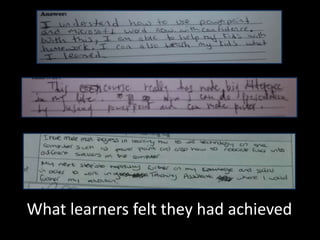 Answer:
I understand how to use powerpoint
and microsoft word now with confidence.
With this, I am able to help my kids with
homework. I can also teach my kids what
I learned.
This course really has made big difference
in my life. now I can do presentation
by using powerpoint and can make poster.
I have made much progress in learning how to use technology on the
computer such as power point and also how to
different in the computer
My next step is improving further on my knowledge and skills
in order to work in a Teaching where I would
further my
What learners felt they had achieved